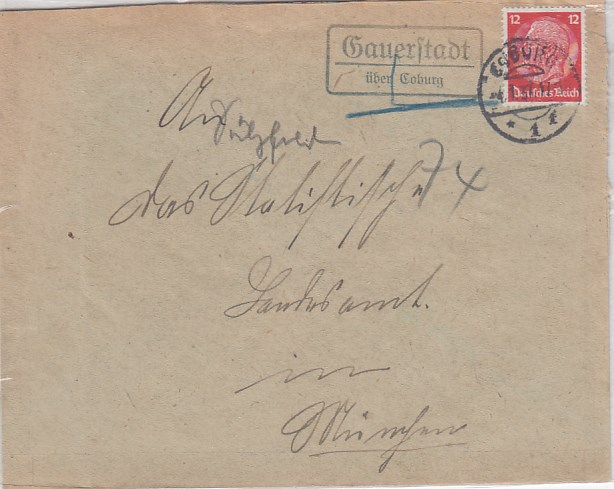 12 12
Deutsches Reich
Gauerstadt
über Coburg
COBURG
1
An
Sulzfeld
das Statistische
74
Landesamt.
in
München